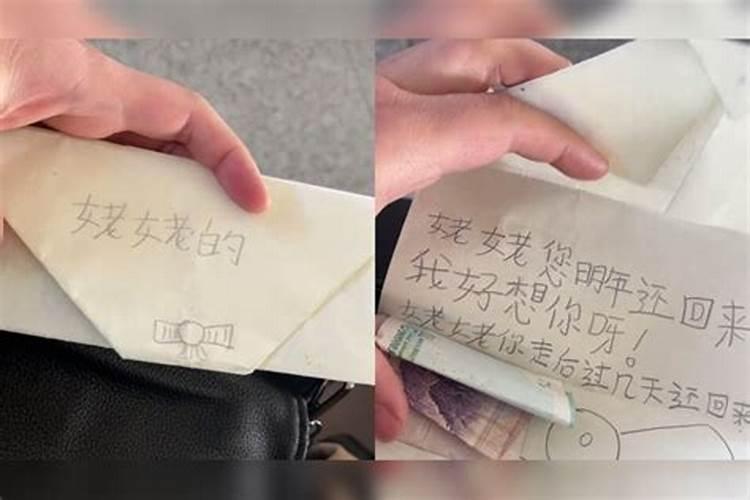 姥姥的
姥姥您明年还回来
我好想你呀！
姥姥你走后过几天还回来